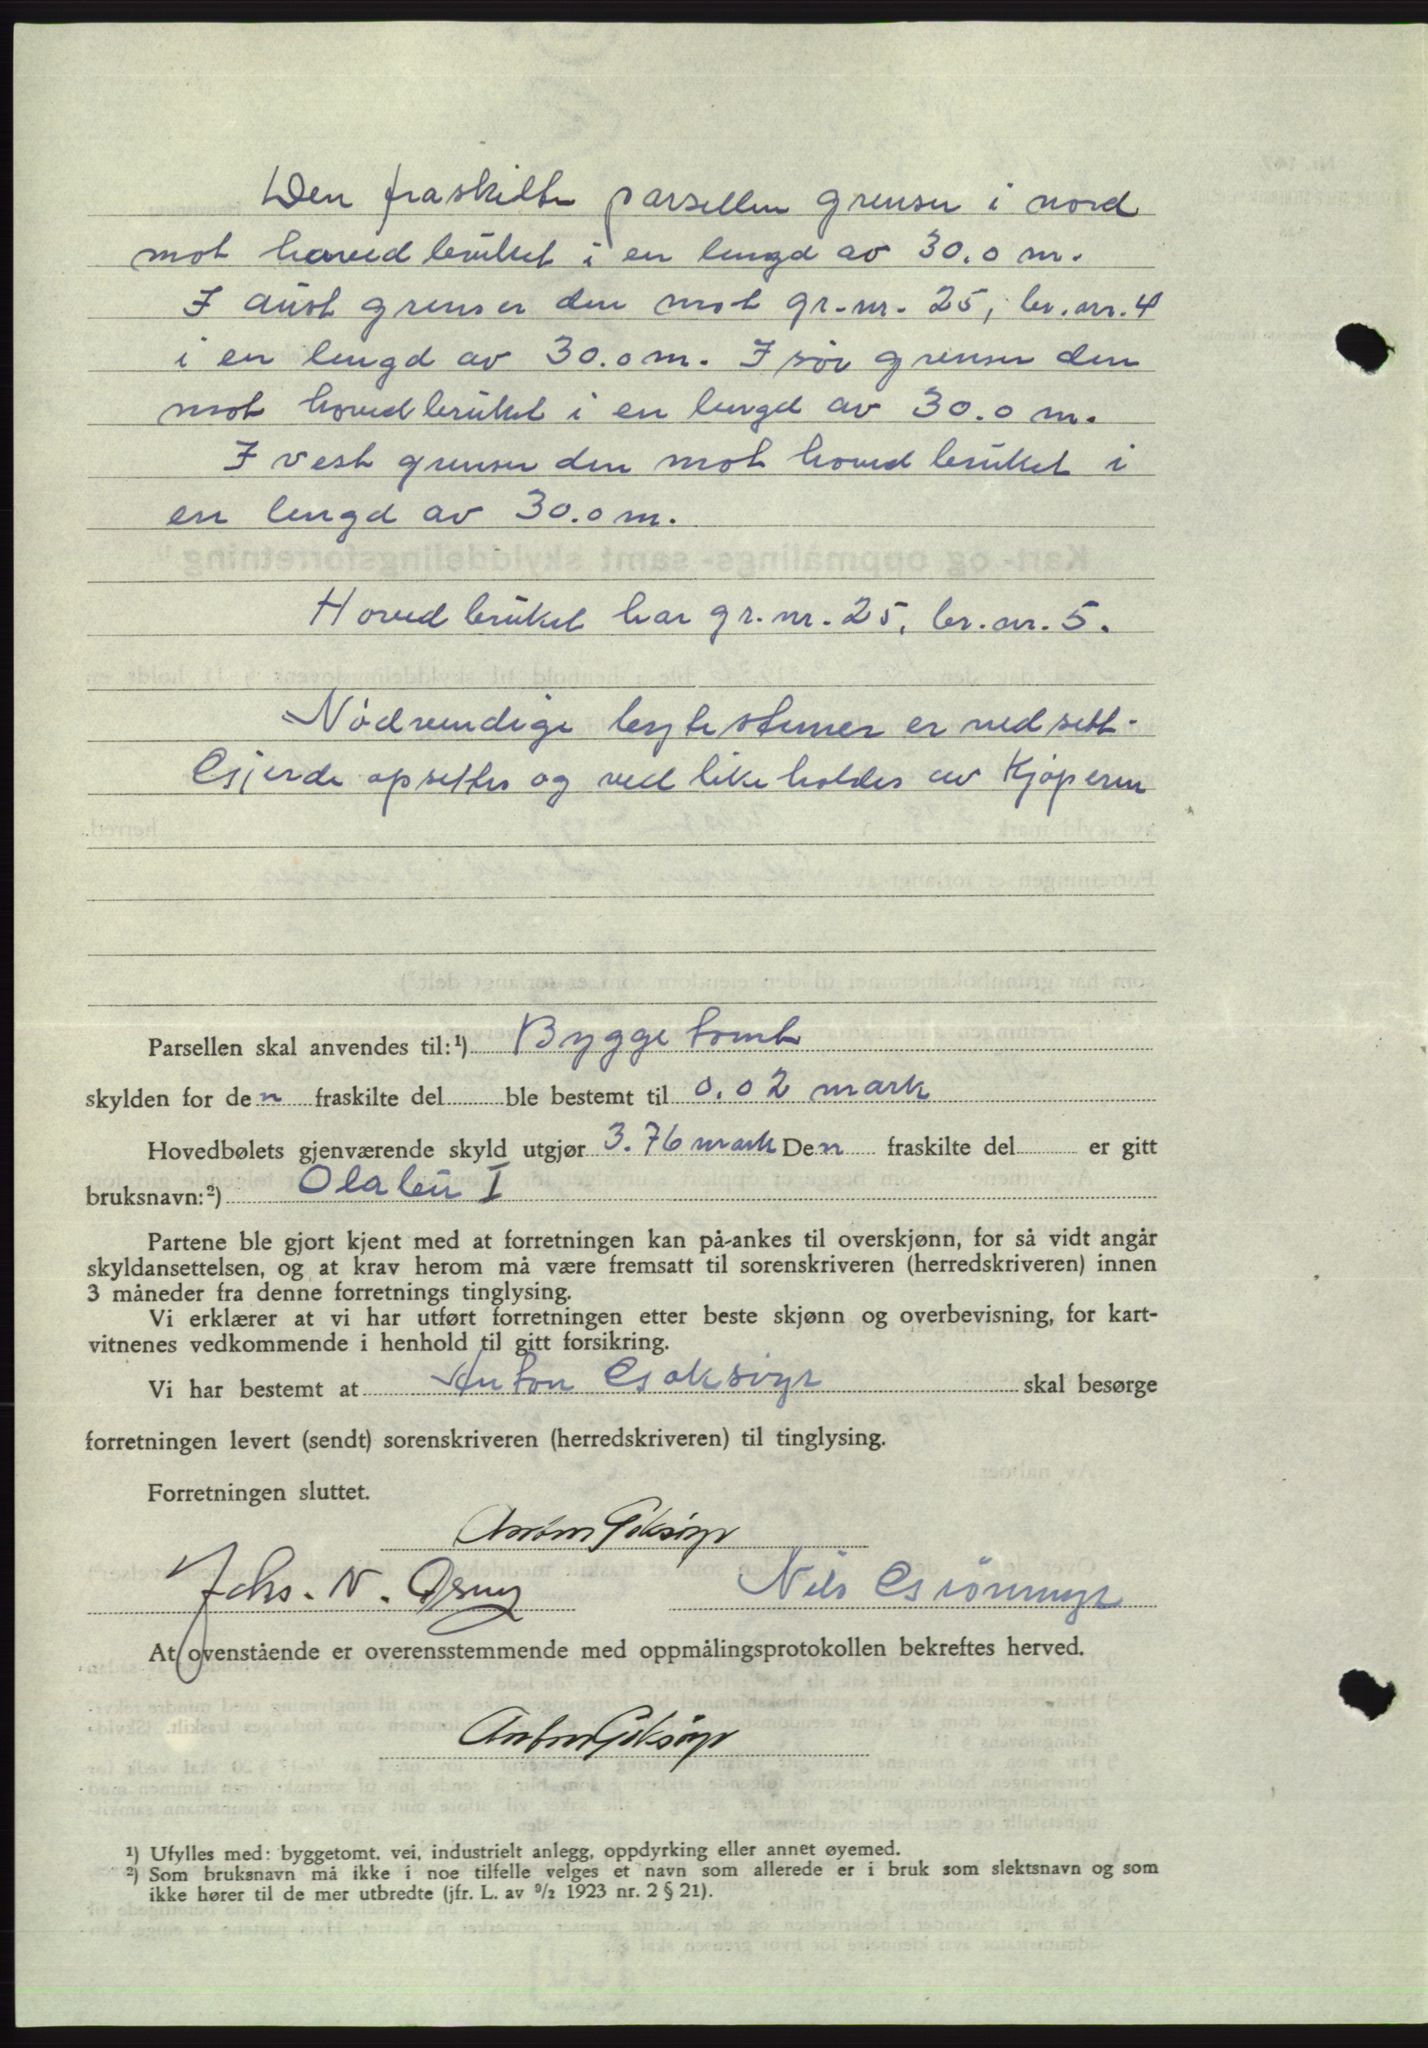 Den fraskilte parsellen grenser i nord
mot hovedbruket i en lengd av 30.0 m.
I aust grenser den mot gr.nr. 25, br.nr. 4
i en lengd av 30.0 m. I sør grenser den
mot hovedbruket i en lengd av 30.0 m.
I vest grenser den mot hovedbruket i
en lengd av 30.0 m.
Hovedbruket har gr.nr. 25, br.nr. 5.
Nødvendige bytesteiner er nedsett.
Gjerde opsettes og vedlikeholdes av Kjøperen
Parsellen skal anvendes til:¹) Byggetomt
skylden for den fraskilte del ble bestemt til 0.02 mark
Hovedbølets gjenværende skyld utgjør 3.76 mark Den fraskilte del er gitt
bruksnavn:²) Olabu I
Partene ble gjort kjent med at forretningen kan på-ankes til overskjønn, for så vidt angår
skyldansettelsen, og at krav herom må være fremsatt til sorenskriveren (herredskriveren) innen
3 måneder fra denne forretnings tinglysing.
Vi erklærer at vi har utført forretningen etter beste skjønn og overbevisning, for kart-
vitnenes vedkommende i henhold til gitt forsikring.
Vi har bestemt at Anton Goksøyr skal besørge
forretningen levert (sendt) sorenskriveren (herredskriveren) til tinglysing.
Forretningen sluttet.
Anton Goksøyr
Johs. N. Nils
At ovenstående er overensstemmende med oppmålingsprotokollen bekreftes herved.
Anton Goksøyr
¹) Ufylles med: byggetomt, vei, industrielt anlegg, oppdyrking eller annet øyemed.
²) Som bruksnavn må ikke i noe tilfelle velges et navn som allerede er i bruk som slektsnavn og som
ikke hører til de mer utbredte (jfr. L. av ⁹/₂ 1923 nr. 2 § 21).